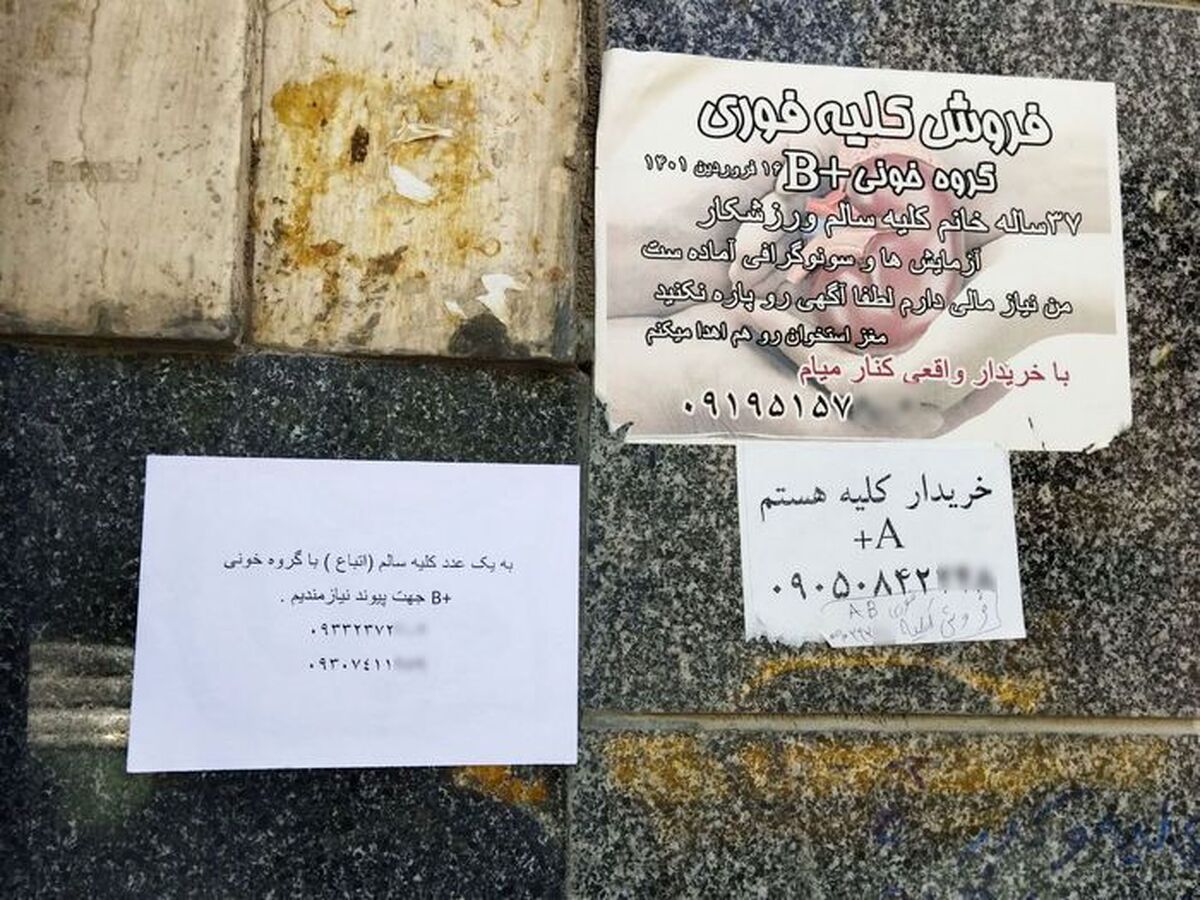 فروش کلیه فوری
گروه خونی B+ ۱۶ فروردین ۱۴۰۱
۳۷ساله خانم کلیه سالم ورزشکار
آزمایش ها و سونوگرافی آماده ست
من نیاز مالی دارم لطفا آگهی رو پاره نکنید
مغز استخوان رو هم اهدا میکنم
با خریدار واقعی کنار میام
۰۹۱۹۵۱۵۷
خریدار کلیه هستم
A+
۰۹۰۵۰۸۴۲
فروش کلیه
AB
به یک عدد کلیه سالم (اتباع ) با گروه خونی
B+ جهت پیوند نیازمندیم .
۰۹۳۳۲۳۷۲
۰۹۳۰۷۴۱۱